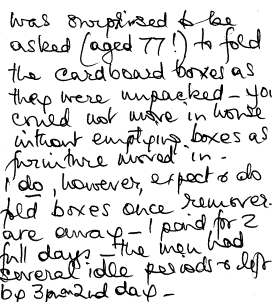 was surprised to be
asked (aged 77!) to fold
the cardboard boxes as
they were unpacked – you
could not move in house
without emptying boxes as
furniture moved in –
I do, however, expect to do
fold boxes once remover
are away – I paid for 2
full days – the men had
several idle periods & left
by 3pm 2nd day –